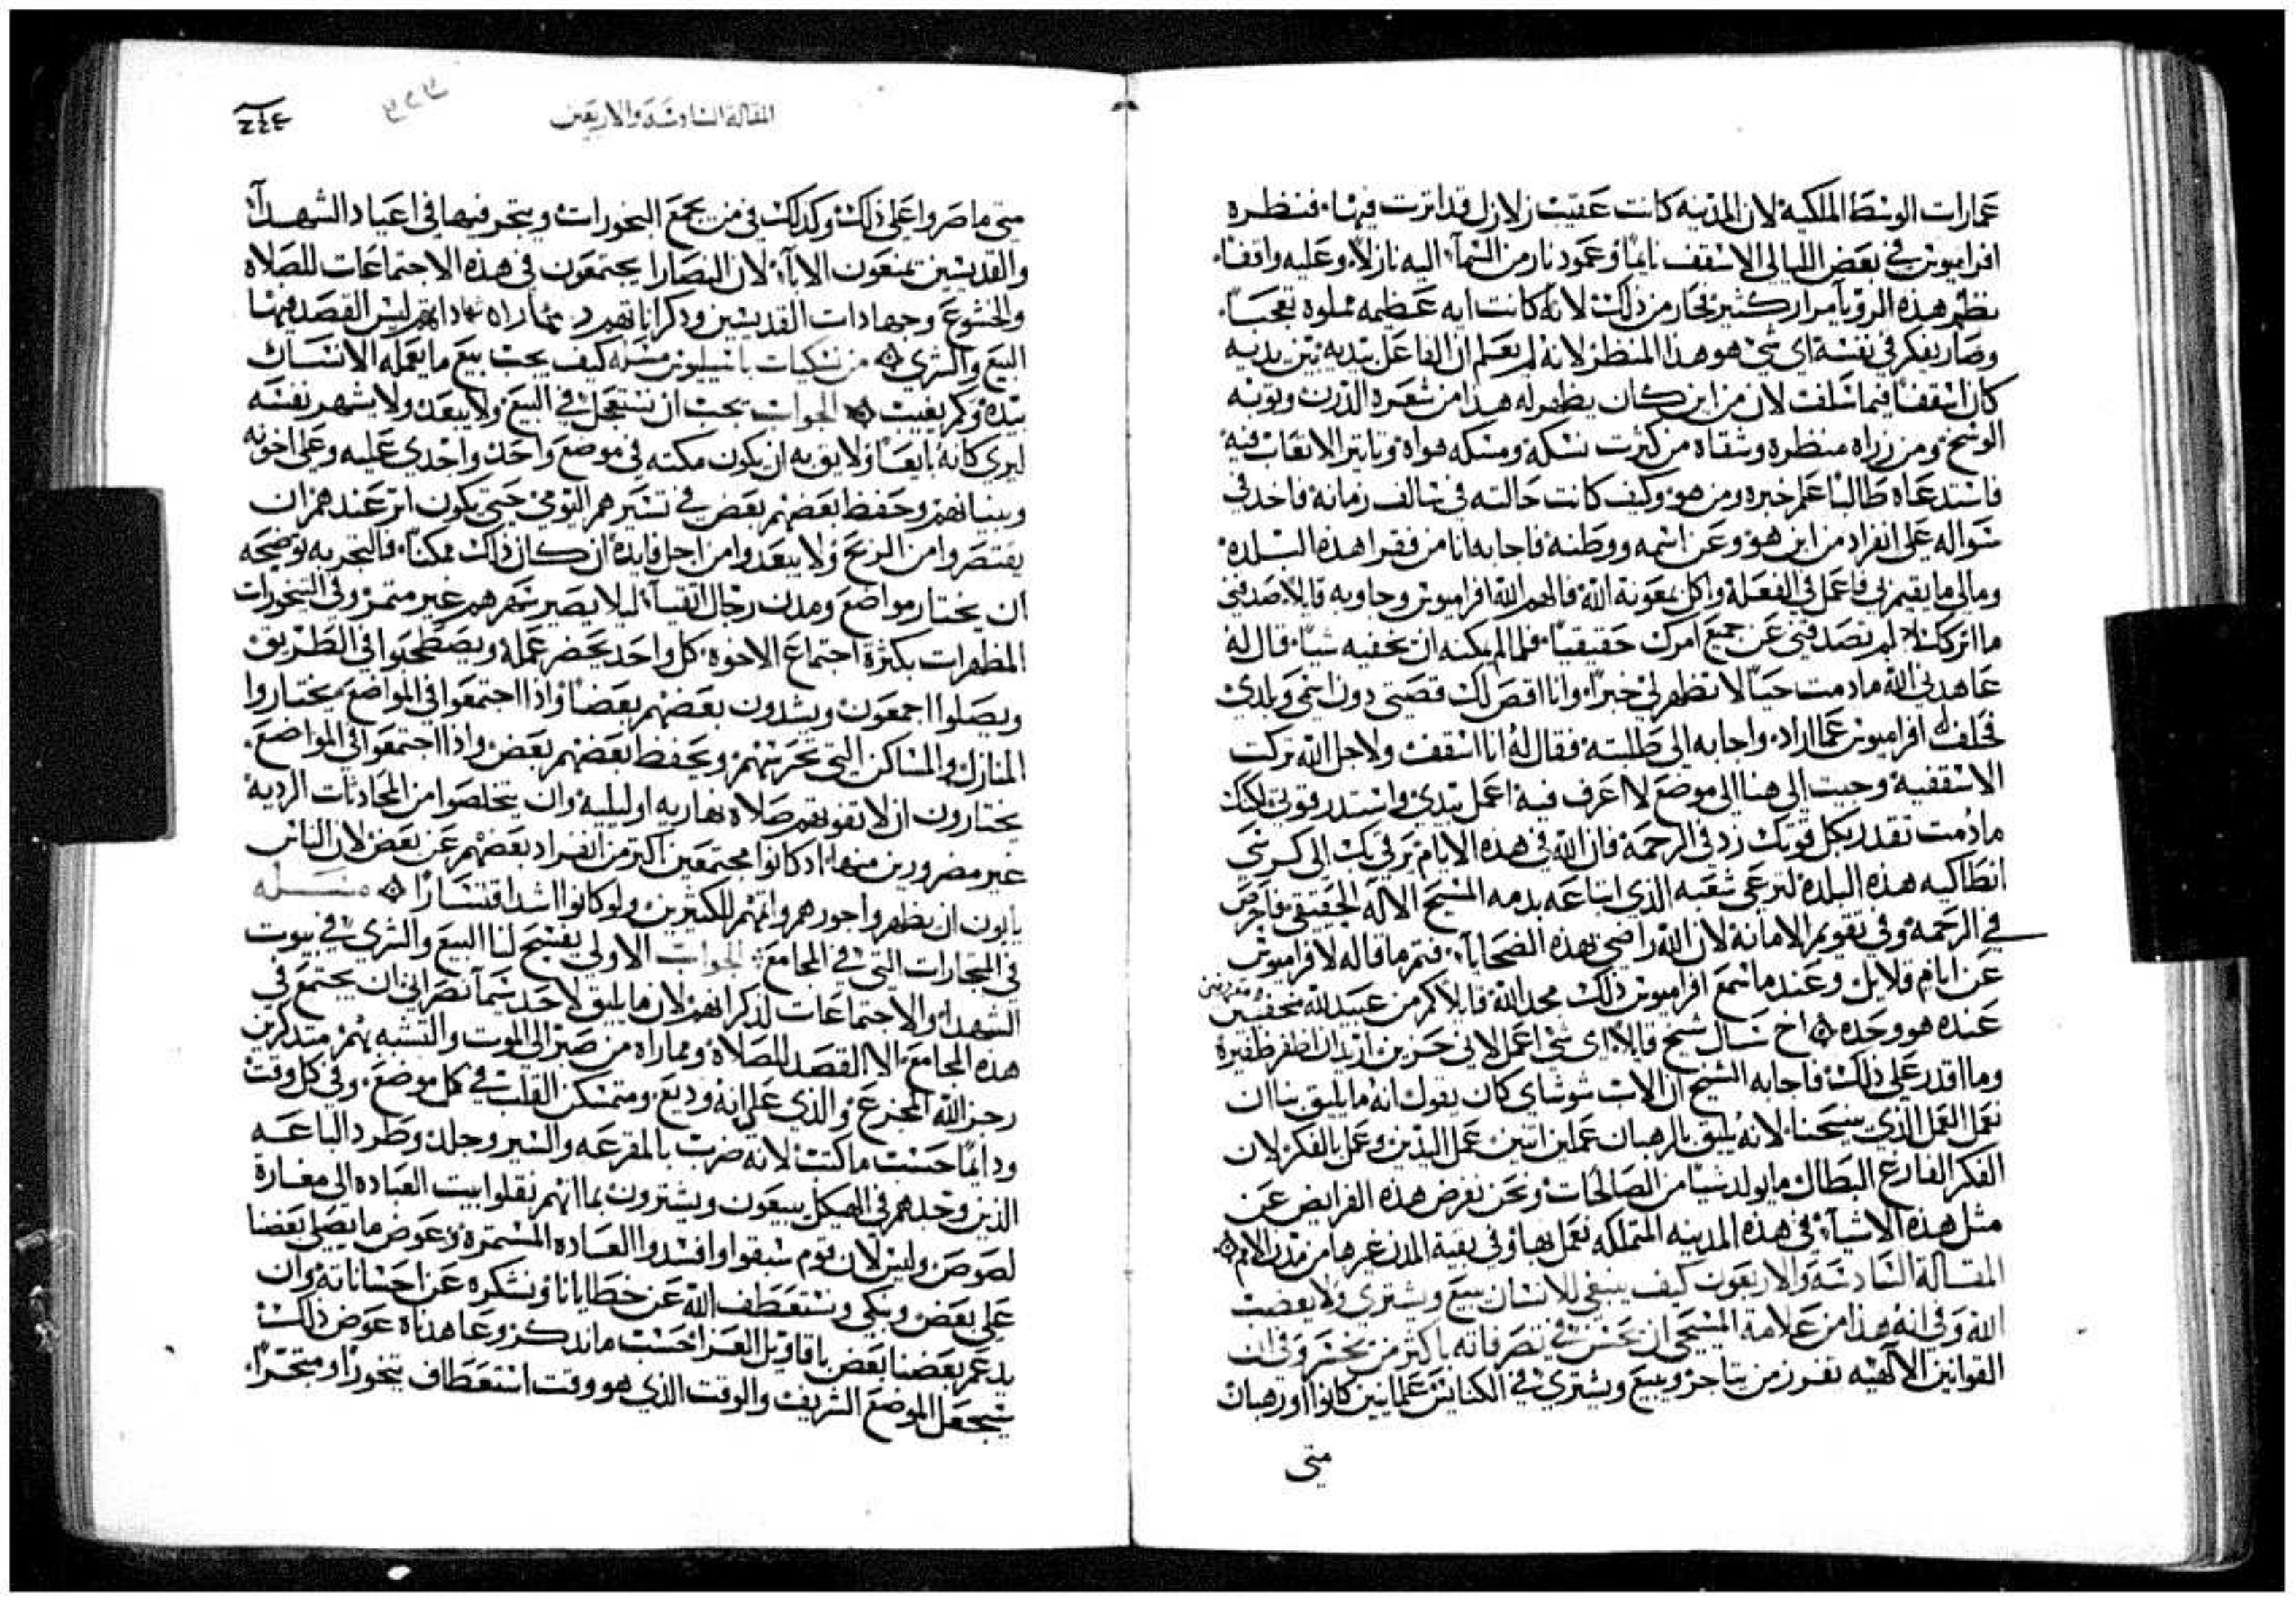 عمارات الوسط الملكية لان المدينه كانت عقيب زلازل قد اثرت فيها. فنظره
افراميوس في بعض الليالي الاسقف نايما وعمود نار من السماء اليه نازلا وعليه واقفا.
نظر هذه الرويا مرار كثير فحار من ذلك لانه كانت ايه عظيمه مملوه تعجبا.
وصار يفكر في نفسه اى شي هو هذا المنظر لانه لم يعلم ان الفاعل بيديه
كان اسقفا فيما سلف لان من اين كان يظهر له هذا من شعره الدرن وثوبه
الوسخ ومن زراه منظره وشقاه من كثرت نسكه ومسكه هواه وتاتير الاتعاب فيه
فاستدعاه طالبا علم خبره ومن هو وكيف كانت حالته في سالف زمانه فاخد في
سواله على انفراد من اين هو وعن اسمه ووطنه فاجابه انا من فقرا هذه البلده
ومالي ما يقيمني فاعمل في الفعلة واكل بمعونة الله فالهم الله افراميوس وجاوبه قايلا صدقني
ما اتركك لم تصدقني عن جميع امرك حقيقيا. فلما لم يمكنه ان يخفيه شيا. قال له
عاهدني الله مادمت حيا لا تظهر لي خبرا. وانا اقص لك قصيتي دون اسمي وبلدي
فحلف له افراميوس عما اراد. واجابه الى طلبته فقال له انا اسقف ولاجل الله تركت
الاسقفية وجيت الى هنا الى موضع لا اعرف فيه اعمل بيدي واستدر قوتي لكنك
ما دمت تقدر بكل قوتك زد في الرحمة فان الله في هذه الايام يرقي بك الى كرسي
انطاكيه هذه البلدة لترعى شعبه الذي ابتاعه بدمه المسيح الاله الحقيقي فاحرص
في الرحمه وفي تقويم الامانة لان الله راضي بهذه الضحايا. فتم ما قاله لافراميوس
عن ايام قلايل وعند ما سمع افراميوس ذلك مجد الله قايلا كم من عبيد لله مخفيين
عنده هو وحده اخ سال شيخ قايلا. اى شي اعمل لاني حزين اريد ان اظفر ظفيره
وما اقدر على ذلك. فاجابه الشيخ ان الاب شوشاي كان يقول انه ما يليق بنا ان
نعمل العمل الذي ينيحنا. لانه يليق بالرهبان عملين اتنين عمل اليدين وعمل بالفكر لان
الفكر الفارغ البطال ما يولد شيا من الصالحات ونحن نفرض هذه الفرايض عن
مثل هذه الاشياء في هذه المدينه المتملكه نعمل بها وفي بقية المدن غيرها من مدن الامم
المقالة السادسة والاربعون كيف ينبغي للانسان يبيع ويشتري ولا يغضب
الله وفي انه هذا من علامة المسيحي ان يخسر في تصرفاته باكثر من يخسر وفي ان
القوانين الالهيه تفرز من يتاجر ويبيع ويشتري في الكنايس علمانيين كانوا او رهبان
متى
المقالة السادسة والاربعين
٢٤٤
متى ما صروا على ذلك وكدلك في من يجمع البخورات ويتجر فيها في اعياد الشهداء
والقديسين يمنعون الاباء لان النصارا يجتمعون في هذه الاجتماعات للصلاه
والخشوع وجهادات القديسين وذكراناتهم ليس القصد فيها
البيع والشري من نسكيات باسيليوس مسله كيف يجب بيع ما يعمله الانسان
بيده وكم يغيب الجواب يجب ان نستعجل في البيع ولا يبعد ولا يشهر نفسه
ليرى كانه بايعا ولايق به ان يكون مكته في موضع واحد واجدي عليه وعلى اخوته
وبنيانهم وحفظ بعضهم بعض في تسيرهم اليومي حتى يكون اثر عندهم ان
يقتصروا من الربح ولا يبعدوا من اجل فايدة ان كان ذلك ممكنا. فالتجربه توضيحه
ان يختار مواضع ومدن رجال اتقيا ليلا يصير سفرهم غير متمر وفي البخورات
المطهرات بكثرة اجتماع الاخوه. كل واحد يحضر عمله ويصطحبوا في الطريق
ويصلوا اجمعون ويشدون بعضهم بعضا واذا اجتمعوا في المواضع يختاروا
المنازل والمساكن التي تحرسهم ويحفظ بعضهم بعض واذا اجتمعوا في المواضع.
يختارون ان لا تفوتهم صلاه نهاريه او ليليه وان يتخلصوا من المحادثات الرديه
غير مضرورين منها اد كانوا مجتمعين اكتر من انفراد بعضهم عن بعض لان الناس
يابون ان يظهروا جورهم واثمهم للكتيرين ولو كانوا اشد اقتسارا مسله
في التجارات التي في المجامع الجواب الاولى يفسح لنا البيع والشري في بيوت
الشهدا والاجتماعات لذكرانهم لان ما يليق لاحد سيما نصراني ان يجتمع في
هذه المجامع الا القصد للصلاة ومماراة من صبر الى الموت والتشبه بهم متدكرين
رجز الله المجزع والذي على انه وديع ومتمسكن القلب في كل موضع. وفي كل وقت
ودايما حسب ما كتب لانه ضرب بالمقرعه والسير وجلد وطرد الباعه
الذين وجدهم في الهيكل يبيعون ويشترون بما انهم نقلوا بيت العباده الى مغارة
لصوص وليس لان قوم سبقوا وافسدوا العاده المستمرة. وعوض ما يصلي بعضنا
على بعض ونبكي ونستعطف الله عن خطايانا ونشكره عن احساناته وان
يدعم بعضنا بعض باقاويل العزا حسب ما ندكر وعاهدناه عوض ذلك
نجعل الموضع الشريف والوقت الذي هو وقت استعطاف بخورا ومتجرا.